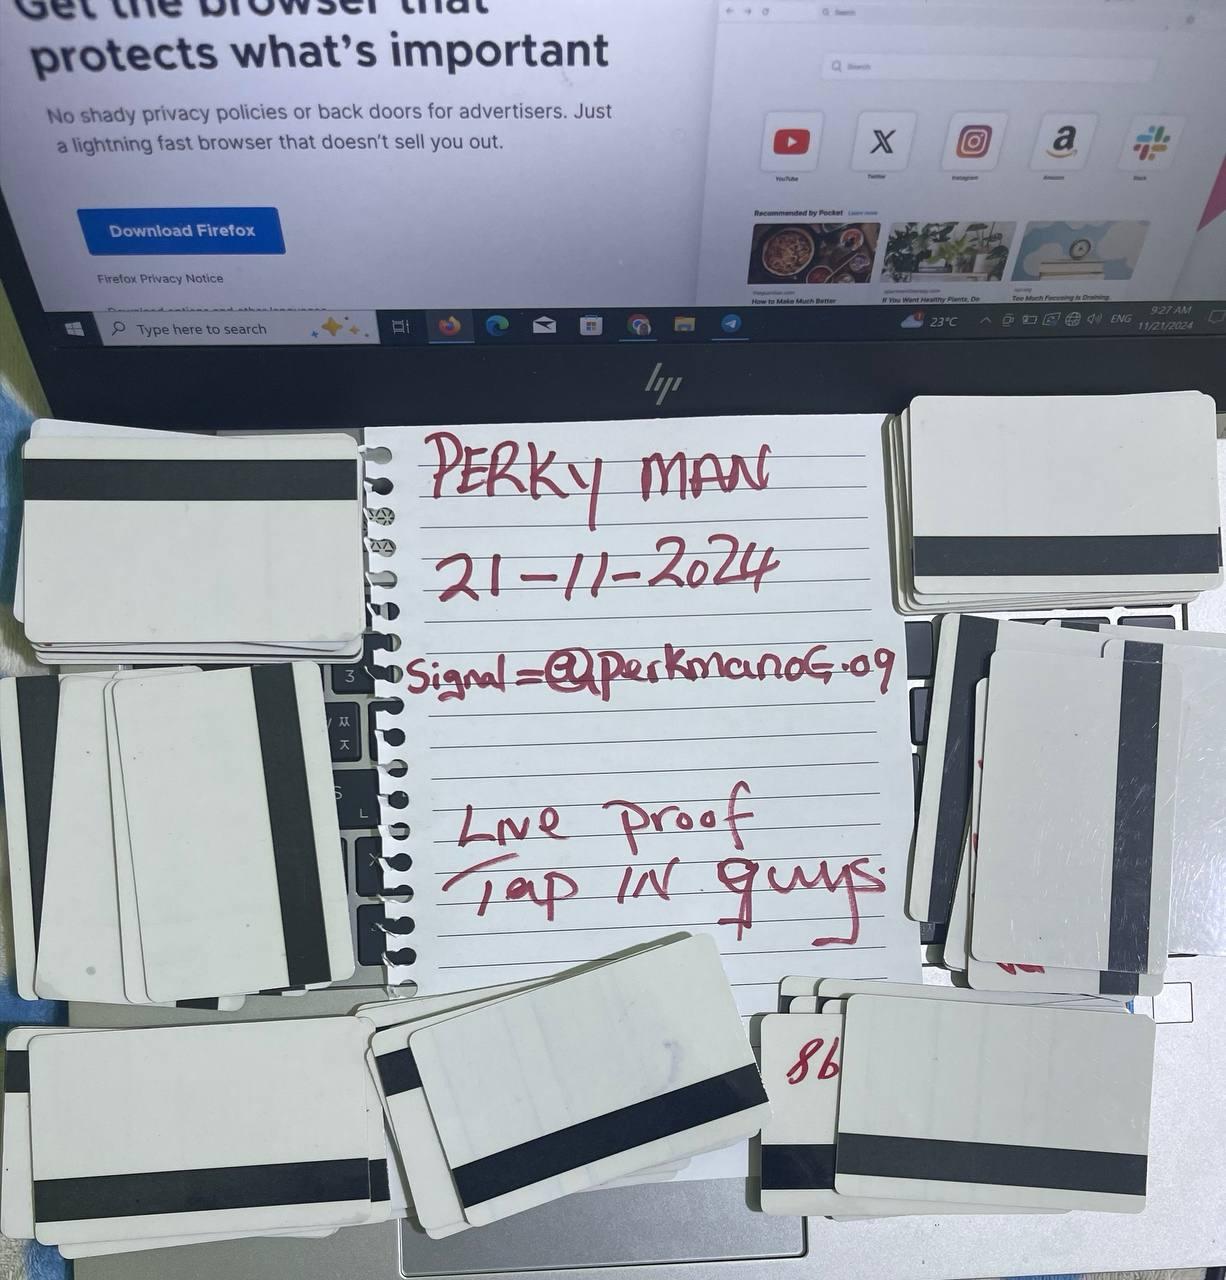 Get the browser that
protects what's important
No shady privacy policies or back doors for advertisers. Just
a lightning fast browser that doesn't sell you out.
Download Firefox
Firefox Privacy Notice
Search
Search
YouTube
Twitter
Instagram
Amazon
Slack
Recommended by Pocket Learn more
How to Make Much Better
If You Want Healthy Plants, Do
Too Much Focusing Is Draining.
Type here to search
23°C
ENG
9:27 AM
11/21/2024
hp
PERKY MAN
21-11-2024
Signal=@perkmanoG.09
Live proof
Tap IN guys.
3
ㅉ
ㅈ
S
L
X
86